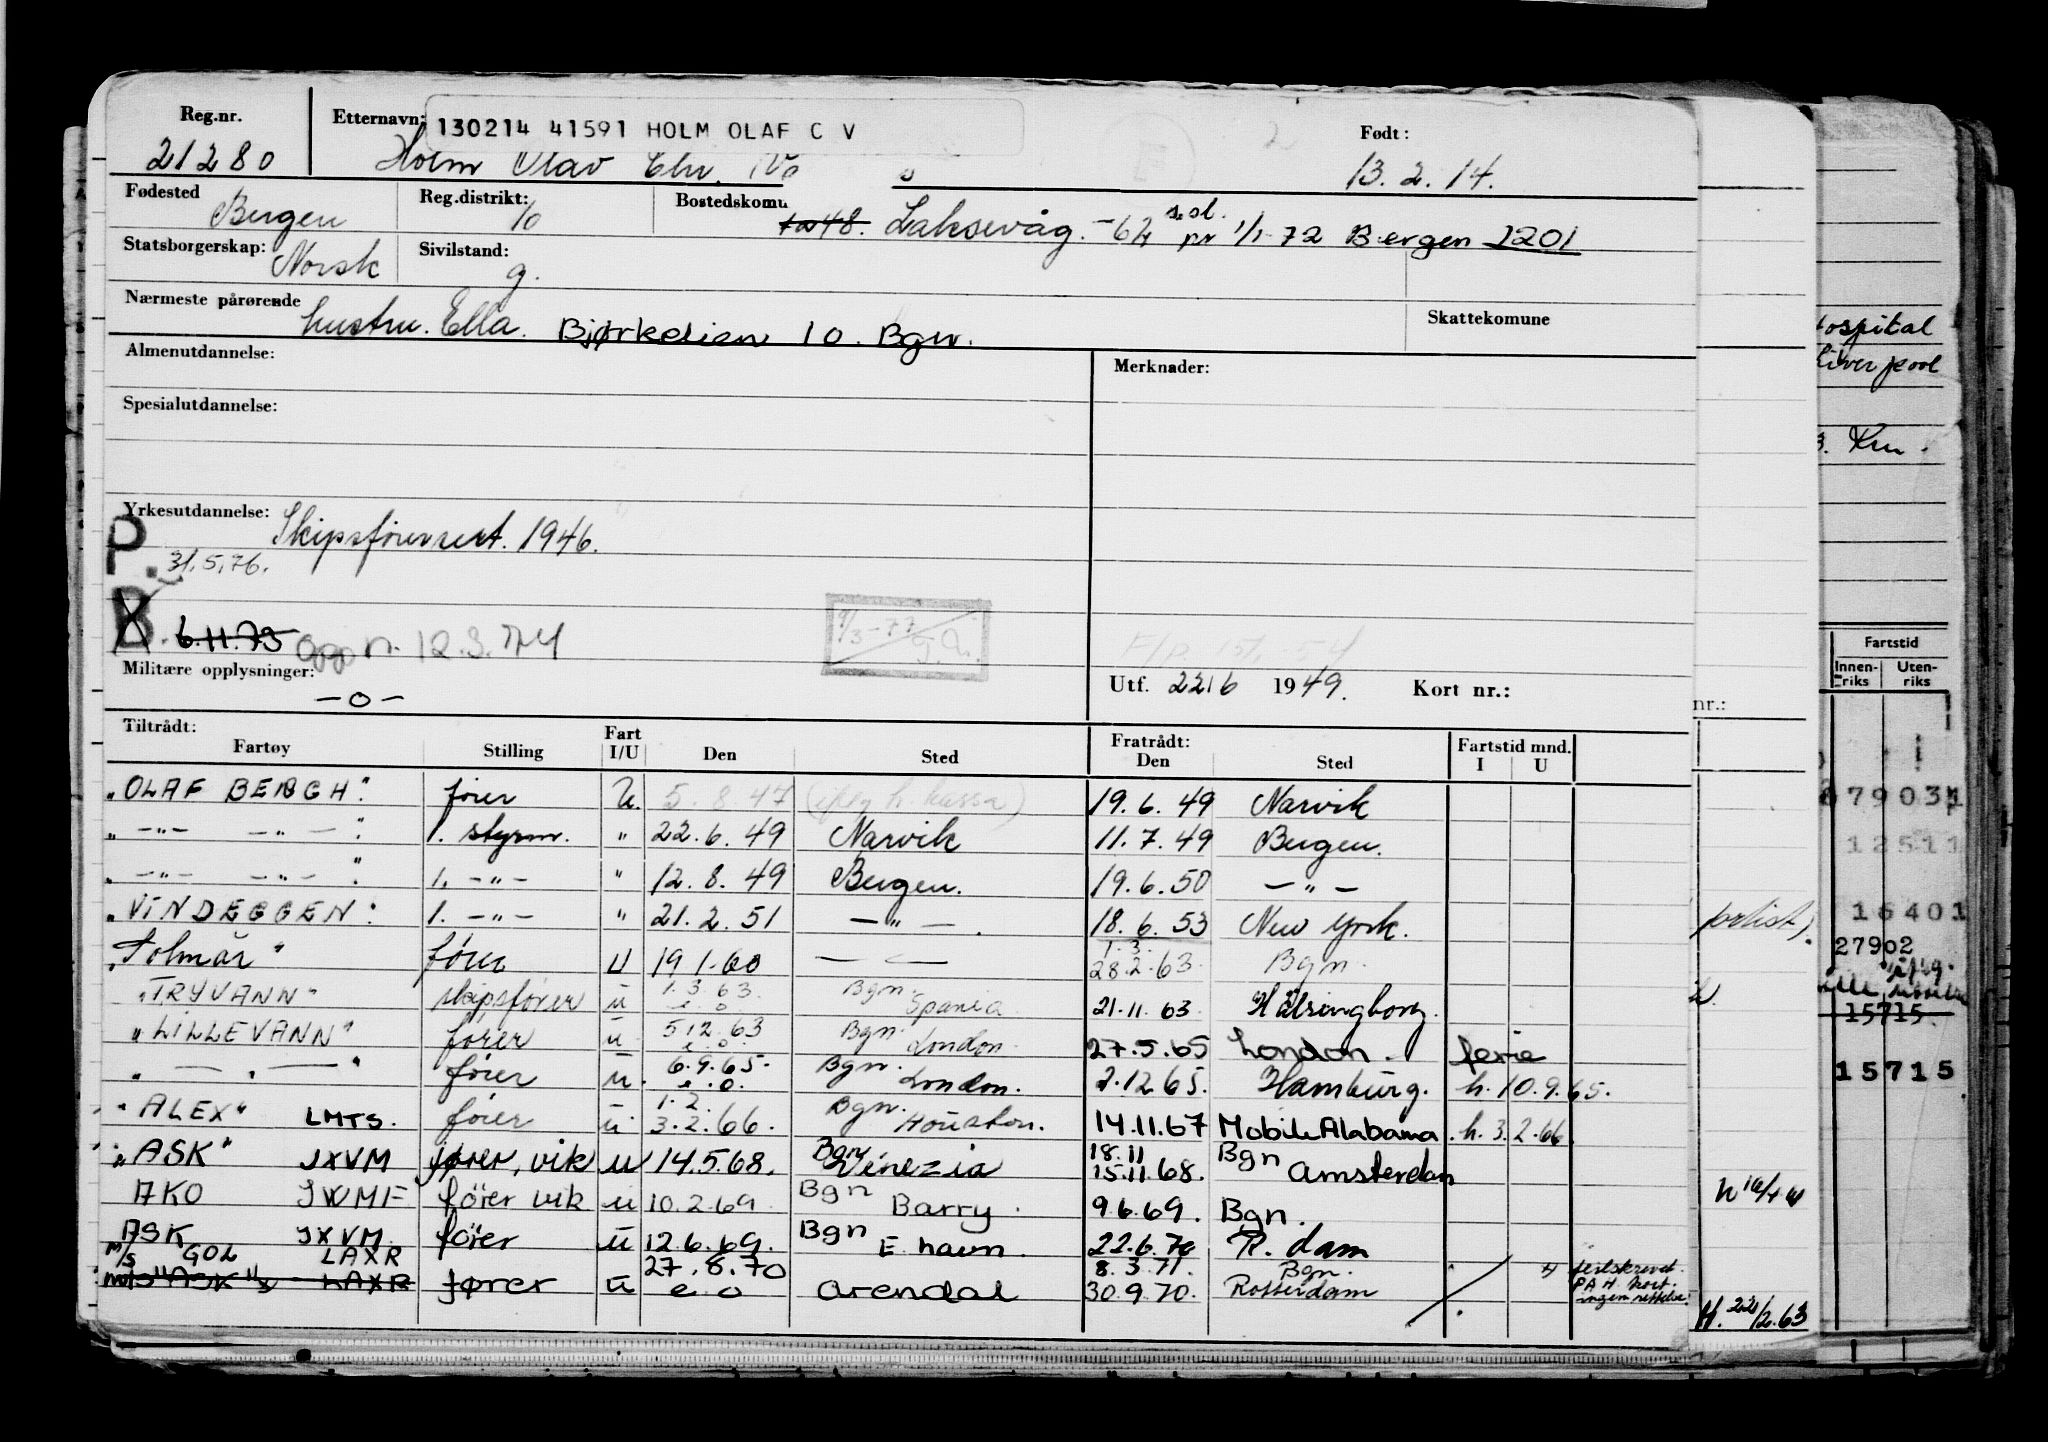 Reg.nr. Etternavn: 130214 41591 HOLM OLAF C V Født:
21280 Holm Olav Chr. 13.2.14.
Fødested Bergen Reg.distrikt: 10 Bostedskomu 48. Laksevåg. -64 s.sl. pr 1/1-72 Bergen 1201
Statsborgerskap: Norsk Sivilstand: g.
Nærmeste pårørende hustru. Ella. Bjørkelien 10. Bgn. Skattekomune
Almenutdannelse: Merknader:
Spesialutdannelse:
Yrkesutdannelse: Skipsførersert. 1946.
P. 31.5.76.
B. 6.11.73 Opp n. 12.3.74
9/3-77
Militære opplysninger: -o- Utf. 22/6 1949. Kort nr.:
Tiltrådt: Fratrådt: Fartstid mnd.
Fartøy Stilling Fart I/U Den Sted Den Sted I U
"OLAF BERGH" fører U. 5.8.47 19.6.49 Narvik
" -"- -"- " 1. styrm. " 22.6.49 Narvik 11.7.49 Bergen.
" -"- -"- " 1. -"- " 12.8.49 Bergen. 19.6.50 -"-
"VINDEGGEN" 1. -"- " 21.2.51 -"- 18.6.53 New York.
"Solmar" fører U 19.1.60 1.3. 28.2.63 Bgn.
"TRYVANN" skipsfører u 1.3.63. e.o Bgn. Spania 21.11.63 Hälsingborg.
"LILLEVANN" fører u 5.12.63 e.o. Bgn. London. 27.5.65 London. ferie
" — " — " fører u. 6.9.65. e.o. Bgn. London. 2.12.65. Hamburg. h. 10.9.65.
"ALEX" LMTS. fører u 1.2. 3.2.66. Bgn. Houston. 14.11.67 Mobile Alabama h. 3.2.66.
"ASK" JXVM fører, vik u 14.5.68. Bgn Venezia 18.11 15.11.68. Bgn Amsterdam
AKO JWMF fører vik u 10.2.69 Bgn Barry. 9.6.69. Bgn.
ASK JXVM fører u 12.6.69. Bgn E. havn. 22.6.70 R. dam
M/S GOL LAXR 27.8.70 8.3.71. Bgn. feilskrevet.
M/S "ASK" LAXR fører u e.o Arendal 30.9.70. Rotterdam PAH kort. ingen rettelse.
Hospital
Liverpool
Fartstid
Innen-riks Uten-riks
12511
16401
27902
15715
15715
nr.:
H. 22/2.63